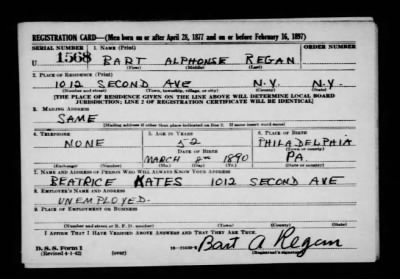 REGISTRATION CARD—(Men born on or after April 28, 1877 and on or before February 16, 1897)
SERIAL NUMBER 1. NAME (Print) ORDER NUMBER
U 1568 BART ALPHONSE REGAN
(First) (Middle) (Last)
2. PLACE OF RESIDENCE (Print)
1012 SECOND AVE N.Y. N.Y.
(Number and street) (Town, township, village, or city) (County) (State)
[THE PLACE OF RESIDENCE GIVEN ON THE LINE ABOVE WILL DETERMINE LOCAL BOARD
JURISDICTION; LINE 2 OF REGISTRATION CERTIFICATE WILL BE IDENTICAL]
3. MAILING ADDRESS
SAME
[Mailing address if other than place indicated on line 2. If same insert word same]
4. TELEPHONE 5. AGE IN YEARS 6. PLACE OF BIRTH
NONE 52 PHILADELPHIA
DATE OF BIRTH (Town or county)
MARCH 1890 PA.
(Exchange) (Number) (Mo.) (Day) (Yr.) (State or country)
7. NAME AND ADDRESS OF PERSON WHO WILL ALWAYS KNOW YOUR ADDRESS
BEATRICE KATES 1012 SECOND AVE
8. EMPLOYER'S NAME AND ADDRESS
UNEMPLOYED
9. PLACE OF EMPLOYMENT OR BUSINESS
(Number and street or R. F. D. number) (Town) (County) (State)
I AFFIRM THAT I HAVE VERIFIED ABOVE ANSWERS AND THAT THEY ARE TRUE.
D. S. S. Form 1 Bart A Regan
(Revised 4-1-42) (over) (Registrant's signature)